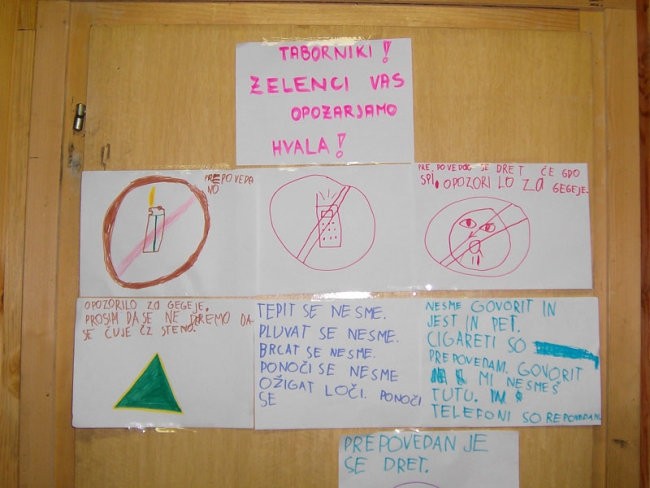 TABORNIKI!
ZELENCI VAS
OPOZARJAMO
HVALA!
PREPOVEDA
NO.
PREPOVEDOG SE DRET ČE GDO
SPI, OPOZORILO ZA GEGEJE.
OPOZORILO ZA GEGEJE,
PROSIM DA SE NE DREMO DA
SE ČUJE ČZ STENO.
TEPIT SE NESME.
PLUVAT SE NESME.
BRCAT SE NESME.
PONOČI SE NESME
OŽIGAT LOČI. PONOČI
SE
NESME GOVORIT IN
JEST IN PET.
CIGARETI SO
PREPOVEDAN. GOVORIT
MI NESMEŠ
TUTU.
TELEFONI SO REPOVEDANI
PREPOVEDAN JE
SE DRET.